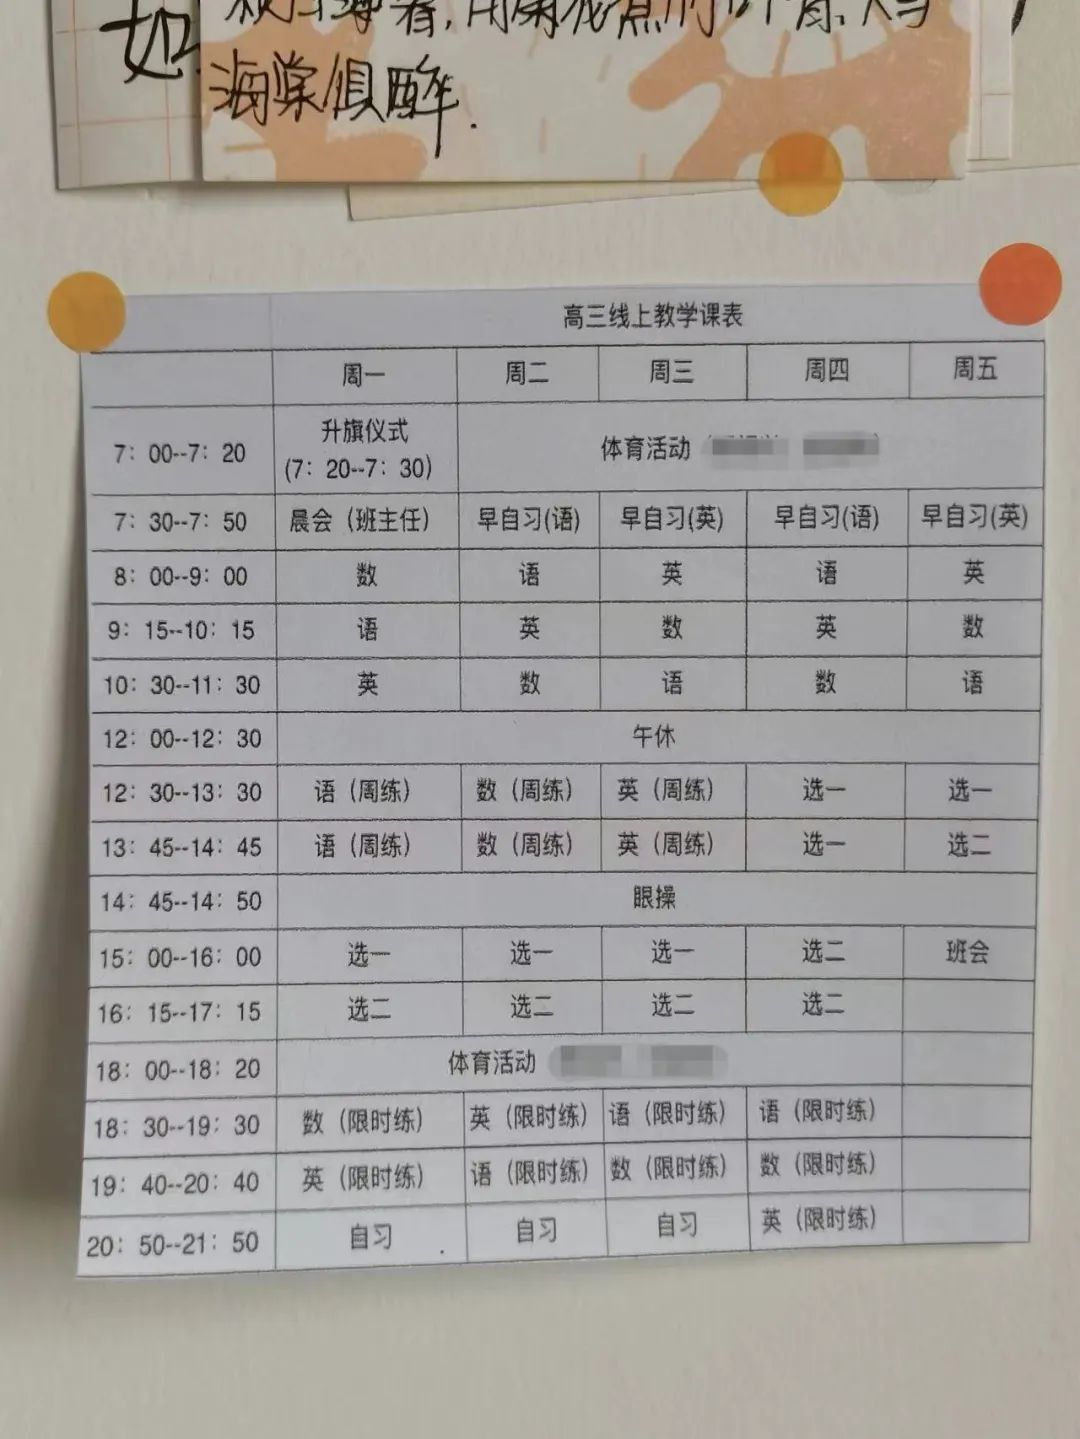 如
海棠俱醉.
高三线上教学课表
周一 周二 周三 周四 周五
7：00--7：20 升旗仪式 (7：20--7：30) 体育活动
7：30--7：50 晨会（班主任） 早自习(语) 早自习(英) 早自习(语) 早自习(英)
8：00--9：00 数 语 英 语 英
9：15--10：15 语 英 数 英 数
10：30--11：30 英 数 语 数 语
12：00--12：30 午休
12：30--13：30 语（周练） 数（周练） 英（周练） 选一 选一
13：45--14：45 语（周练） 数（周练） 英（周练） 选一 选二
14：45--14：50 眼操
15：00--16：00 选一 选一 选一 选二 班会
16：15--17：15 选二 选二 选二 选二
18：00--18：20 体育活动
18：30--19：30 数（限时练） 英（限时练） 语（限时练） 语（限时练）
19：40--20：40 英（限时练） 语（限时练） 数（限时练） 数（限时练）
20：50--21：50 自习 自习 自习 英（限时练）